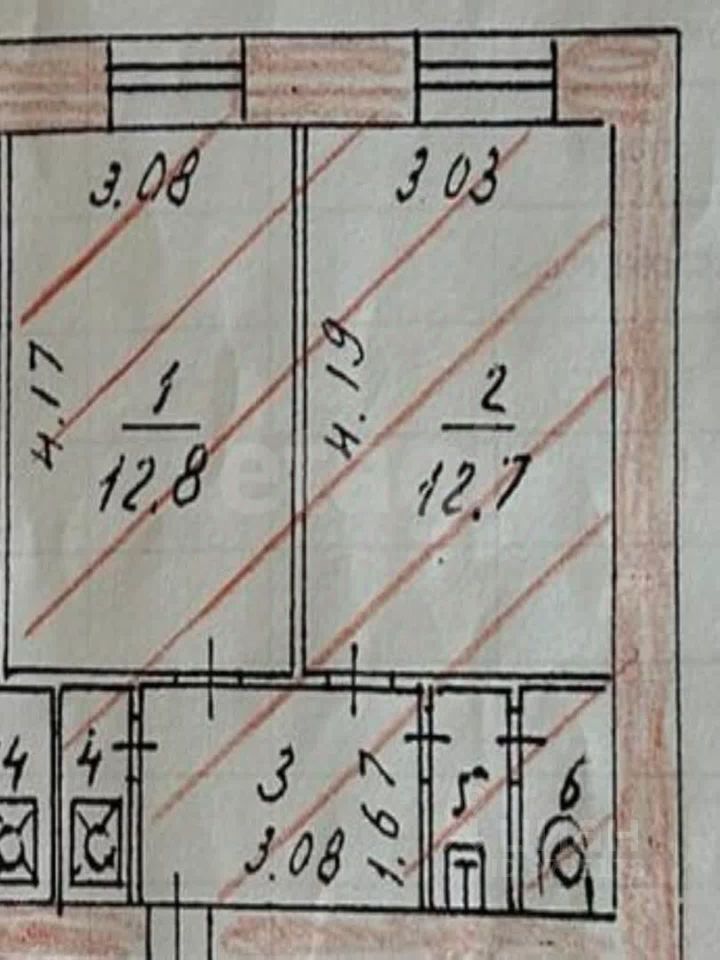 3.08
3 03
4.17
4.19
1
12.8
2
12.7
4
4
3
3.08
1.67
5
6